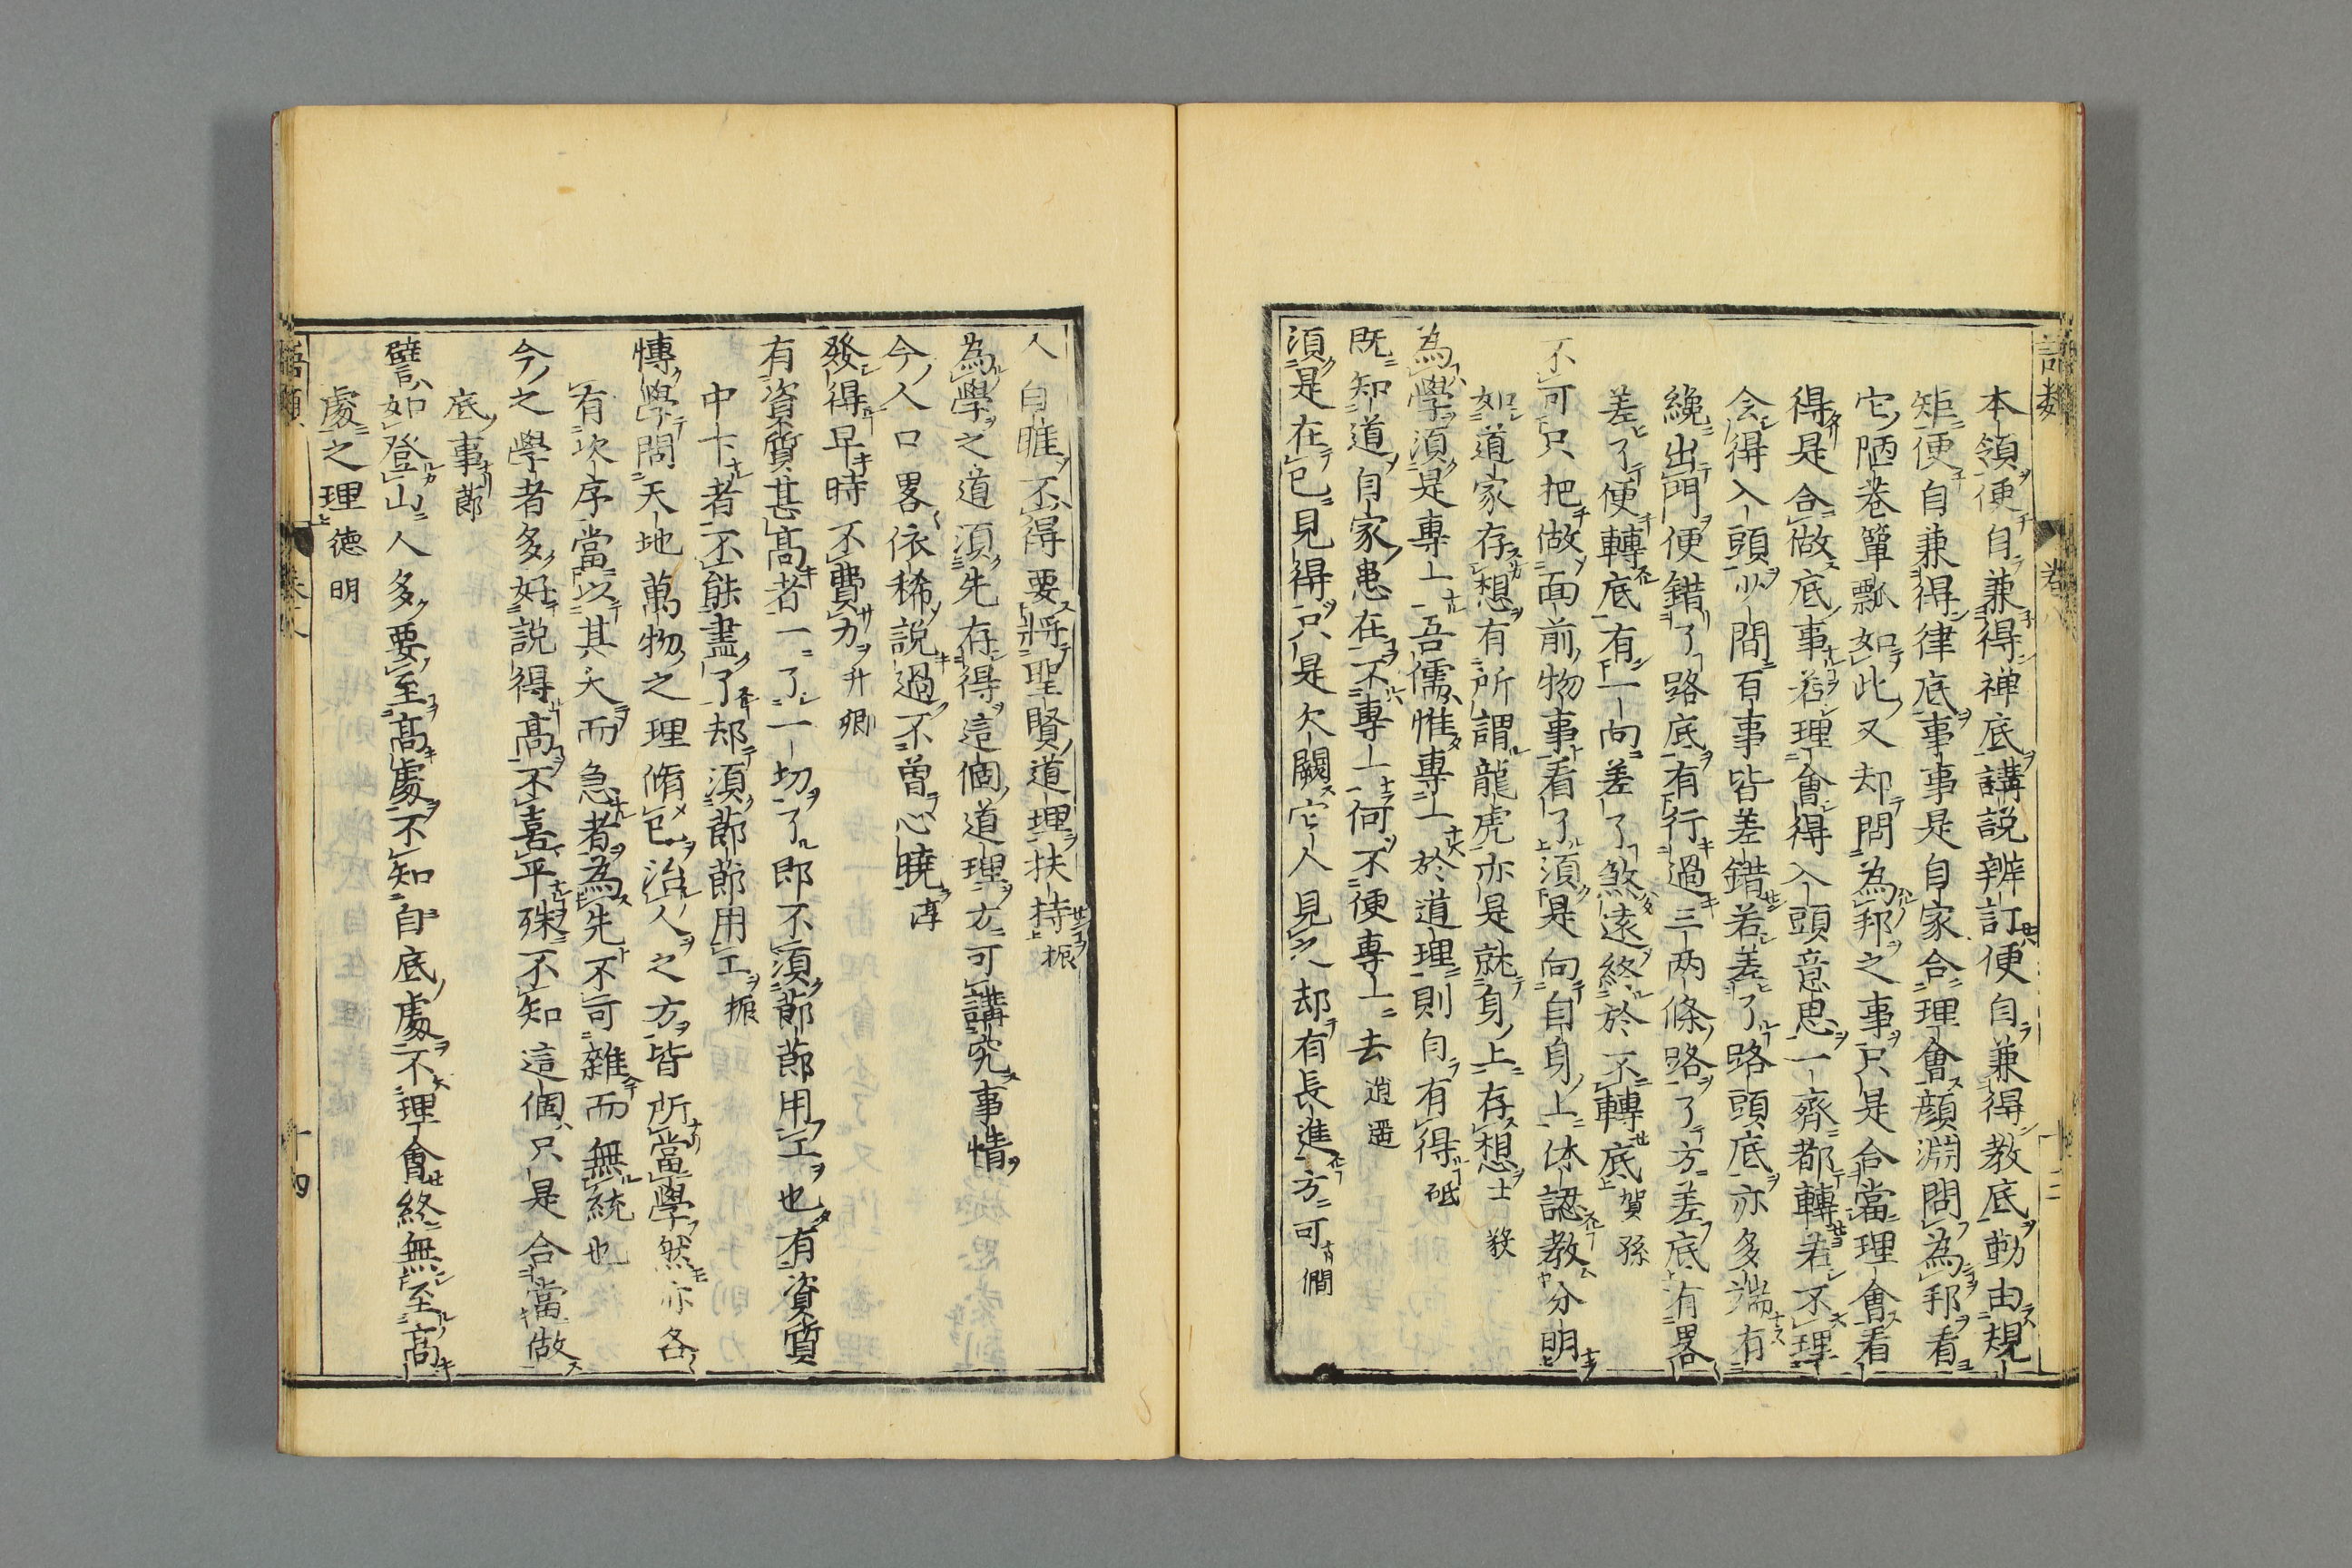 本領便自兼得禅底講說辨訂便自兼得教底動由規
矩便自兼得律底事事是自家合理會顔淵問為邦看
它陋巷簞瓢如此又却問為邦之事只是合當理會看
得是合做底事若理會得入頭意思一齊都轉若不理
会得入頭少間百事皆差錯若差了路頭底亦多端有
纔出門便錯了路底有行過三两條路了方差底有畧
差了便轉底有一向差了煞遠終於不轉底賀孫
不可只把做面前物事看了須是向自身上体認教分明
如道家存想有所謂龍虎亦是就身上存想士毅
為學須是專一吾儒惟專一於道理則自有得砥
既知道自家患在不專一何不便專一去逍遥
須是在己見得只是欠闕它人見之却有長進方可僩
人白睚不得要將聖賢道理扶持振
為學之道須先存得這個道理方可講究事情
今人口畧依稀說過不曾心曉淳
發得早時不費力升卿
有資質甚高者一了一切了即不須節節用工也有資質
中下者不能盡了却須節節用工振
博學問天地萬物之理脩已治人之方皆所當學然亦各
有次序當以其大而急者為先不可雜而無統也
今之學者多好說得高不喜平殊不知這個只是合當做
底事節
譬如登山人多要至高處不知自底處不理會終無至高
處之理德明
語類
卷八
十四